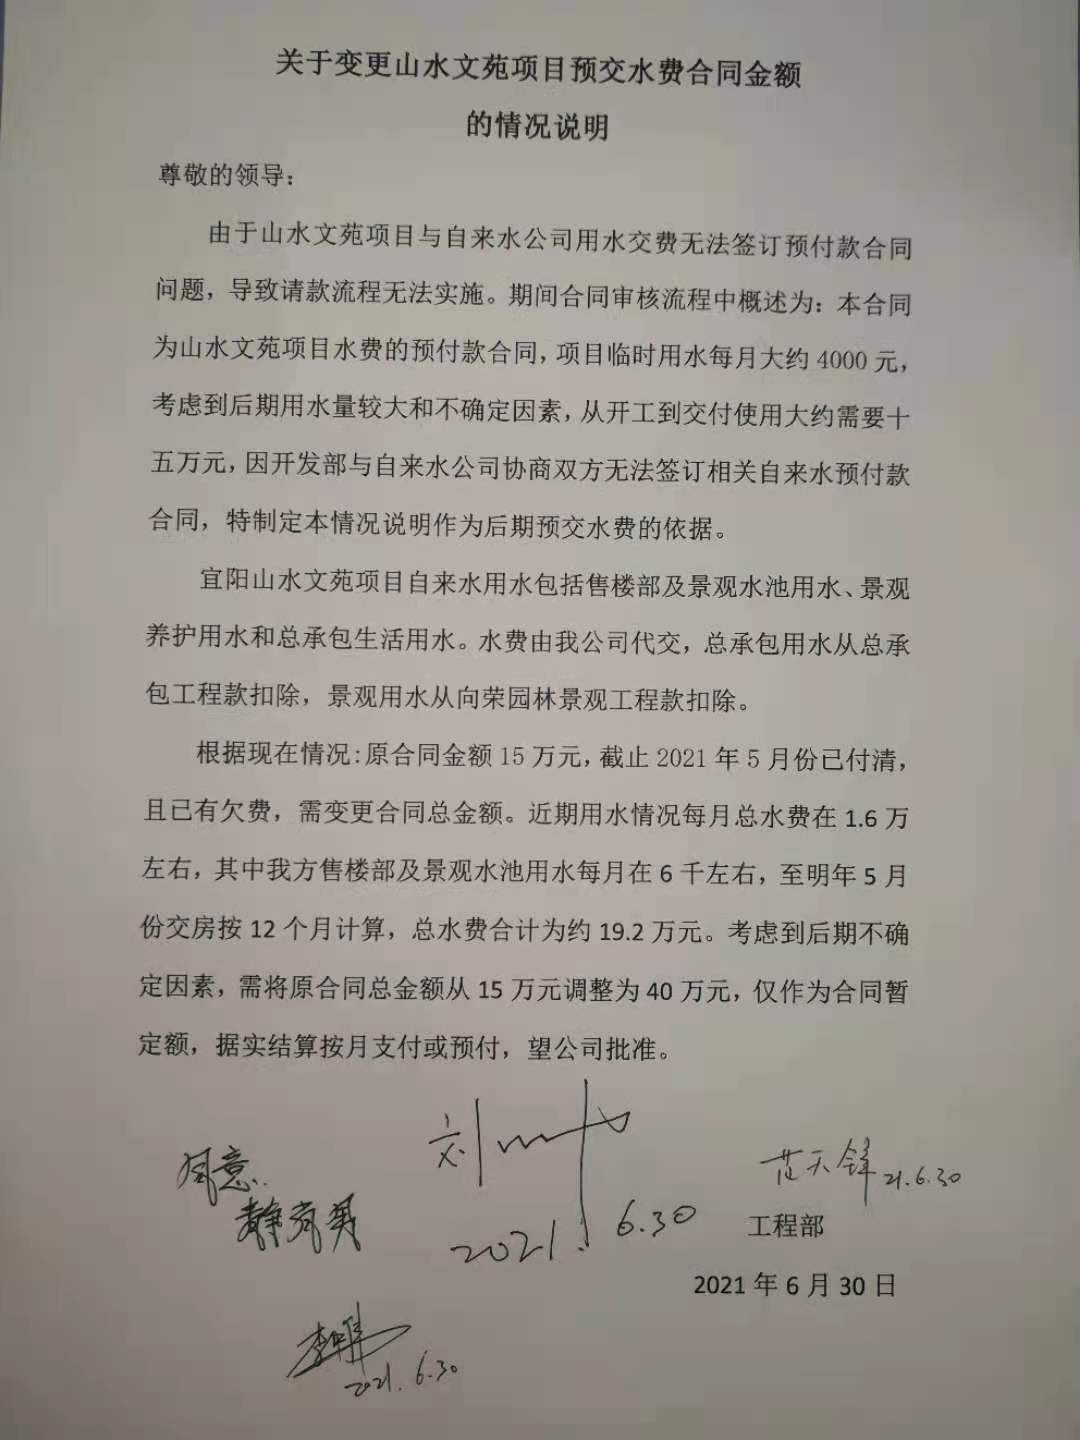 关于变更山水文苑项目预交水费合同金额
的情况说明
尊敬的领导：
由于山水文苑项目与自来水公司用水交费无法签订预付款合同
问题，导致请款流程无法实施。期间合同审核流程中概述为：本合同
为山水文苑项目水费的预付款合同，项目临时用水每月大约 4000 元，
考虑到后期用水量较大和不确定因素，从开工到交付使用大约需要十
五万元，因开发部与自来水公司协商双方无法签订相关自来水预付款
合同，特制定本情况说明作为后期预交水费的依据。
宜阳山水文苑项目自来水用水包括售楼部及景观水池用水、景观
养护用水和总承包生活用水。水费由我公司代交，总承包用水从总承
包工程款扣除，景观用水从向荣园林景观工程款扣除。
根据现在情况：原合同金额 15 万元，截止 2021 年 5 月份已付清，
且已有欠费，需变更合同总金额。近期用水情况每月总水费在 1.6 万
左右，其中我方售楼部及景观水池用水每月在 6 千左右，至明年 5 月
份交房按 12 个月计算，总水费合计为约 19.2 万元。考虑到后期不确
定因素，需将原合同总金额从 15 万元调整为 40 万元，仅作为合同暂
定额，据实结算按月支付或预付，望公司批准。
同意.
刘
2021.6.30
范天锋 21.6.30
工程部
2021 年 6 月 30 日
2021.6.30